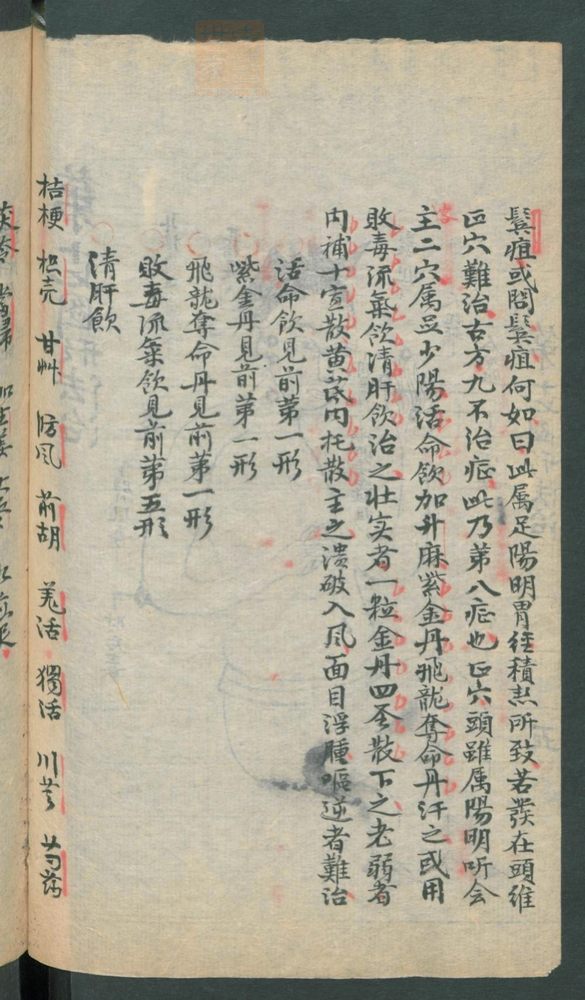 鬢疽或問鬢疽何如曰此属足陽明胃経積热所致若發在頭维
正穴難治古方九不治症此乃苐八症也正穴頭雖属陽明所会
主二穴属足少陽活命飲加升麻紫金丹飛龍奪命丹汗之或用
敗毒流氣飲清肝飲治之壮实者一粒金丹四圣散下之老弱者
内補十宣散黄芪内托散主之潰破入風面目浮腫嘔逆者難治
活命飲見前苐一形
紫金丹見前苐一形
飛龍奪命丹見前苐一形
敗毒流氣飲見前苐五形
清肝飲
桔梗 枳壳 甘艸 防風 前胡 羌活 獨活 川芎 芍药